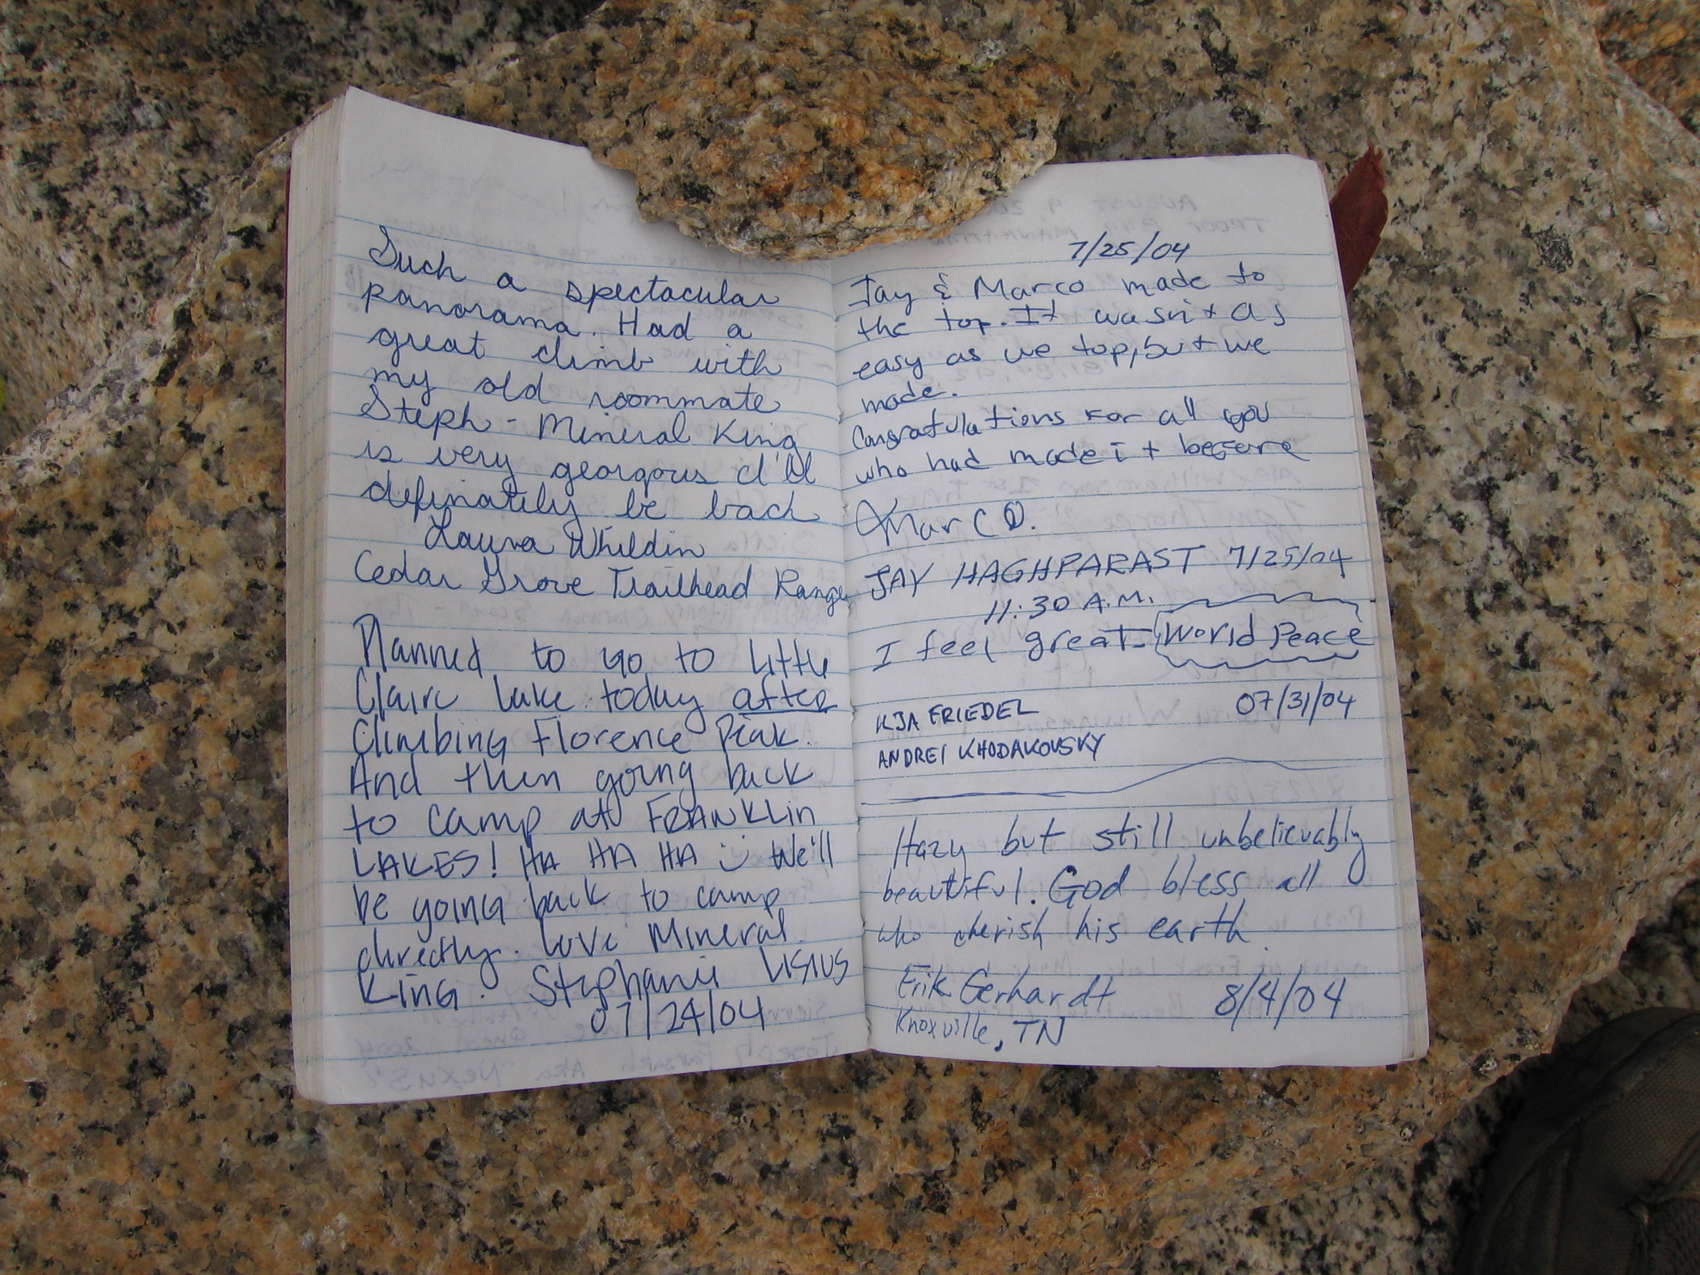 Such a spectacular
panorama. Had a
great climb with
my old roommate
Steph - Mineral King
is very georgous I'll
definately be back
Laura Whildin
Cedar Grove Trailhead Ranger
Planned to go to Little
Claire Lake today after
Climbing Florence Peak.
And then going back
to camp at FRANKLIN
LAKES! HA HA HA We'll
be going back to camp
directly. Love Mineral
King. Stephanie
07/24/04
7/25/04
Jay & Marco made to
the top. It wasn't as
easy as we top, but we
made.
Congratulations For all you
who had made it before
Marco.
JAY HAGHPARAST 7/25/04
11:30 A.M.
I feel great - World Peace
ILJA FRIEDEL 07/31/04
ANDREI KHODAKOVSKY
Hazy but still unbelievably
beautiful. God bless all
who cherish his earth.
Erik Gerhardt 8/4/04
Knoxville, TN